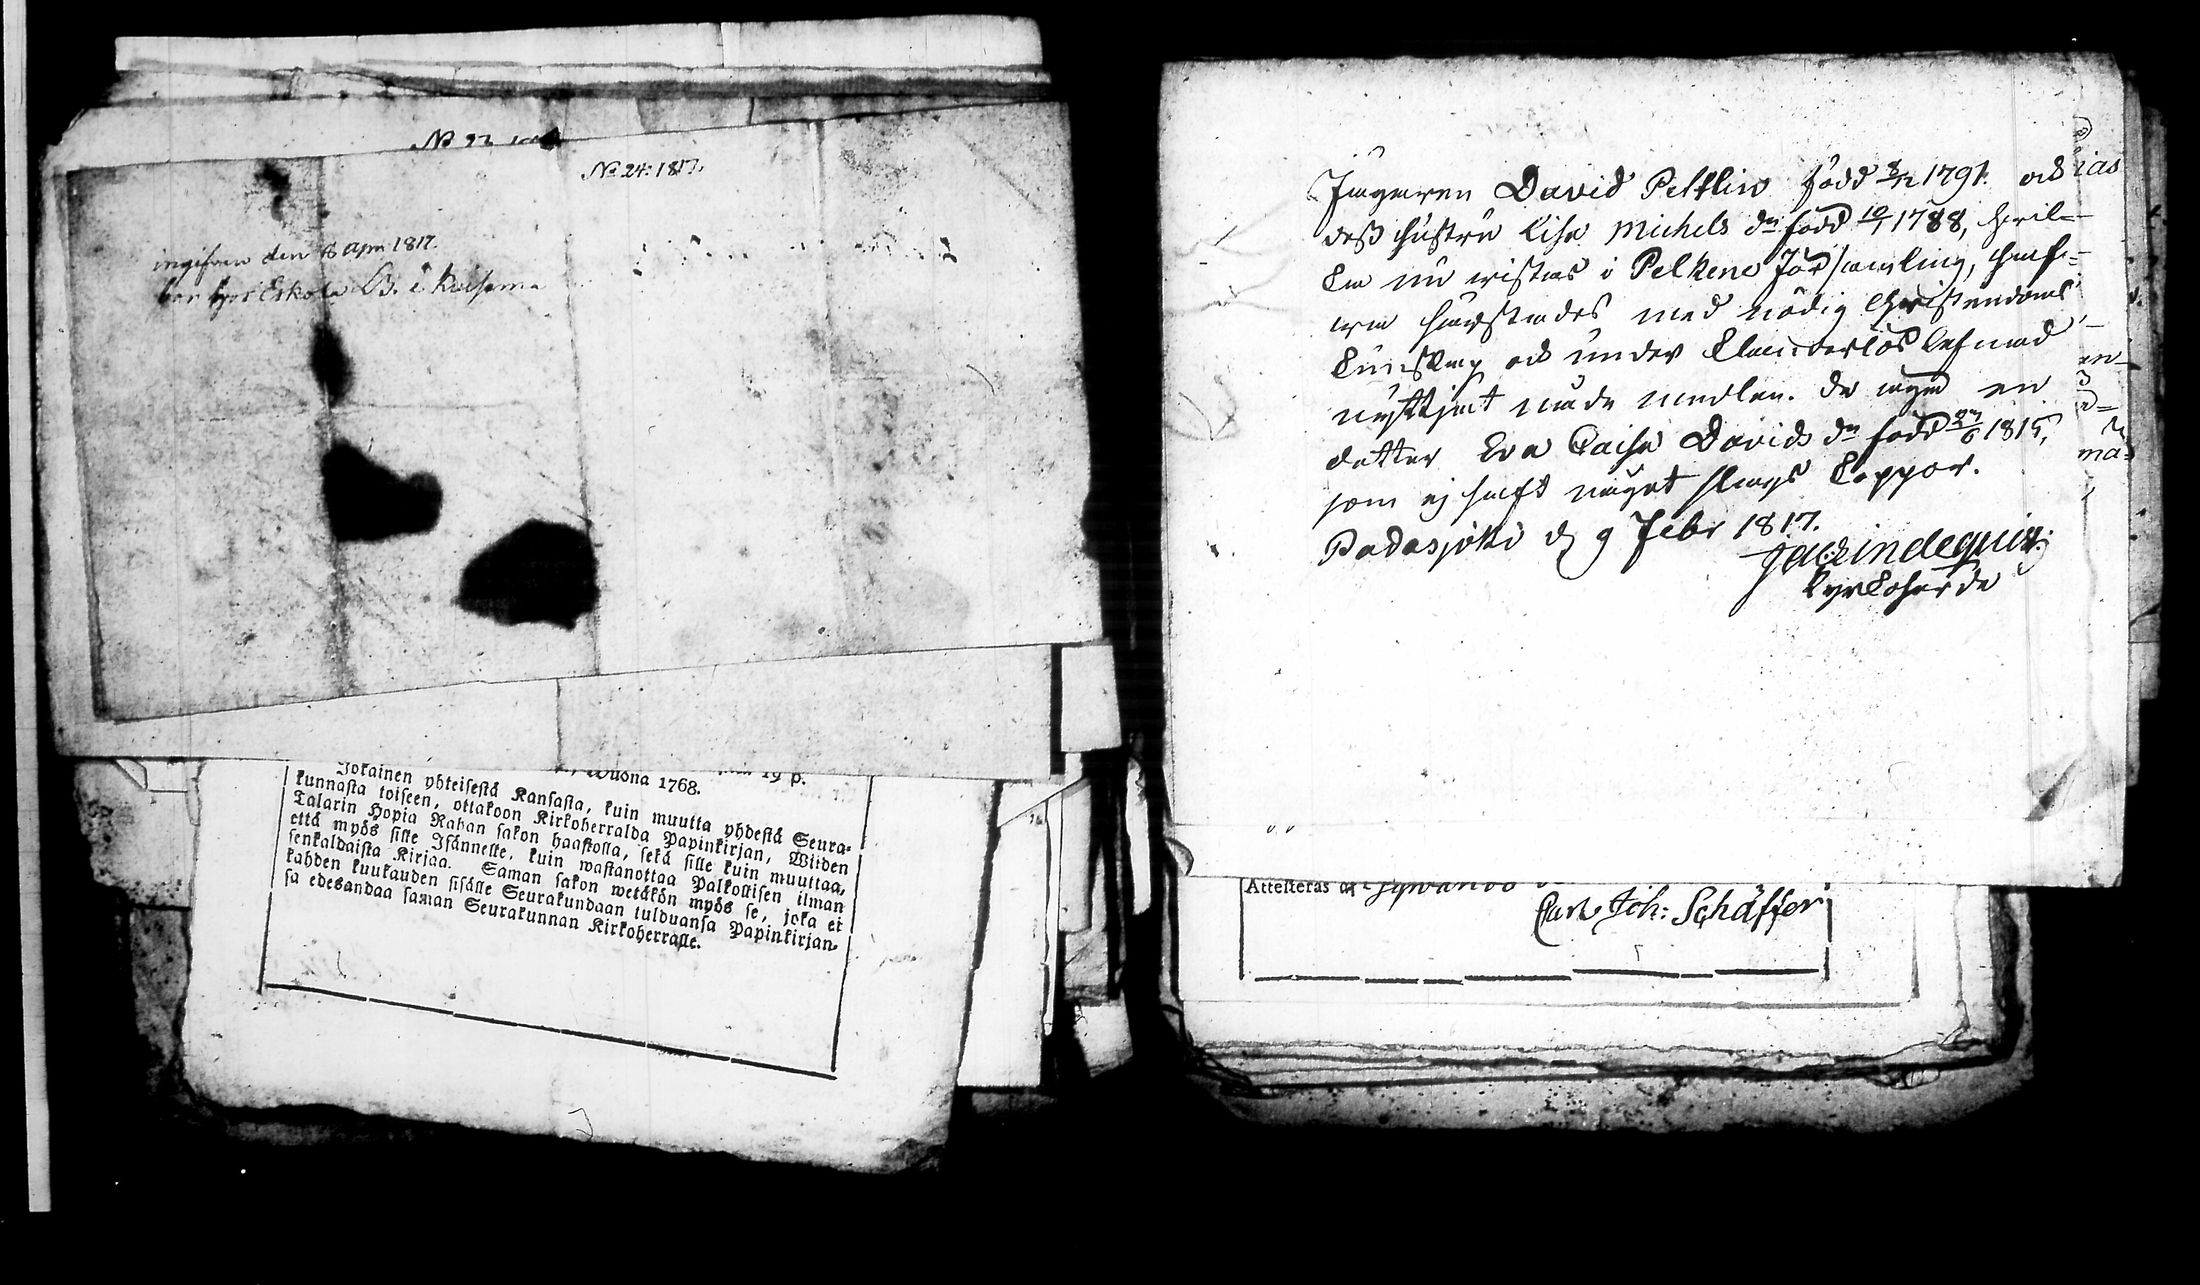 No 24: 1817.
ingifven den 18 Apr 1817.
bor hos Eskola B. i
Jokainen yhteisestä Kansasta, kuin muutta yhdestä Seura-
kunnasta toiseen, ottakoon Kirkoherralda Papinkirjan, Wiiden
Talarin Hopia Rahan sakon haastolla, sekä sille kuin muuttaa,
että myös sille Isännelle, kuin wastanottaa Palkollisen ilman
senkaldaista Kirjaa. Saman sakon wetäkön myös se, joka ei
kahden kuukauden sisälle Seurakundaan tulduansa Papinkirjan-
sa edesandaa saman Seurakunnan Kirkoherralle.
Wuona 1768.
19 p.
David Pettlin född 8/12 1791. och
dess hustru Lisa Michels dr född 10/1 1788, hvil-
ka nu vistas i Pelkene Församling, hafva
härstädes med nödig Christendoms
Kunskap och under Klanderlös lefnad
nyttjat nåde medlen. De äga en
dotter Eva Caisa Davids dr född 27/6 1815,
som ej haft något slags Koppor.
Padasjoki d 9 Febr 1817.
Jac: Lindequist.
Kyrkoherde
Attesteras af
Carl Joh: Schäffer